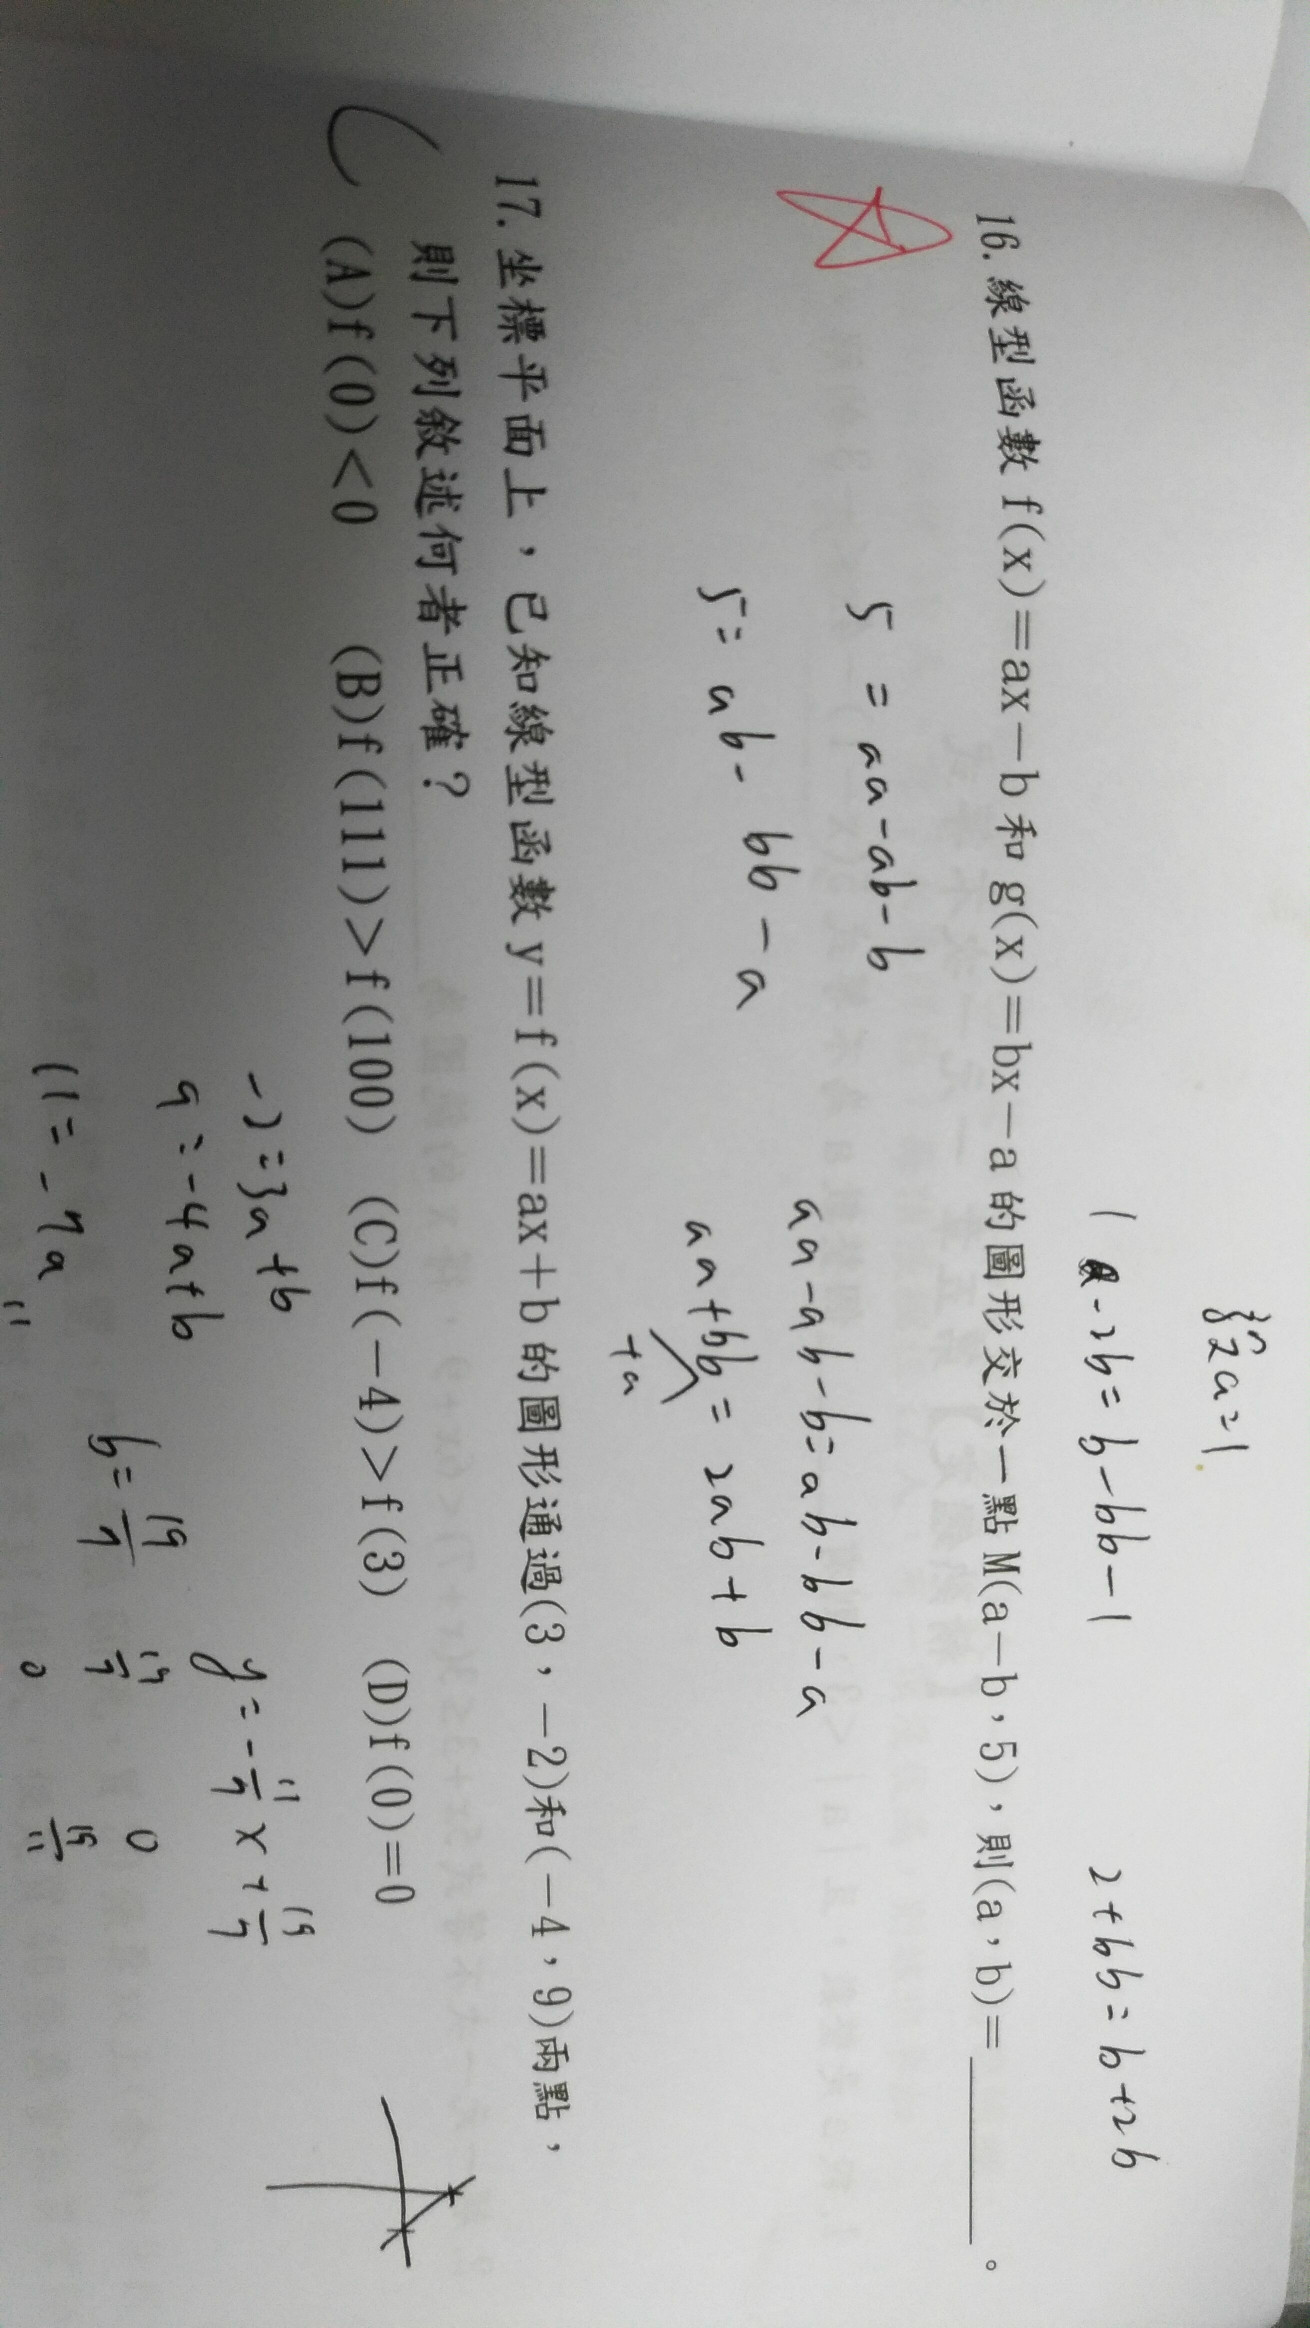 }2a=1
1-2b=b-bb-1
2+bb=b+2b
16.線型函數 f(x)=ax-b 和 g(x)=bx-a 的圖形交於一點 M(a-b,5),則(a,b)=______。
5 = aa-ab-b
5= ab- bb-a
aa-ab-b=ab-bb-a
aa+bb=2ab+b
+a
17.坐標平面上,已知線型函數 y=f(x)=ax+b 的圖形通過(3,-2)和(-4,9)兩點,
則下列敘述何者正確?
(A)f(0)<0 (B)f(111)>f(100) (C)f(-4)>f(3) (D)f(0)=0
-2=3a+b
9=-4a+b
11=-7a
b=19/7
y=-11/7x+19/7
19/7 0
0 19/11